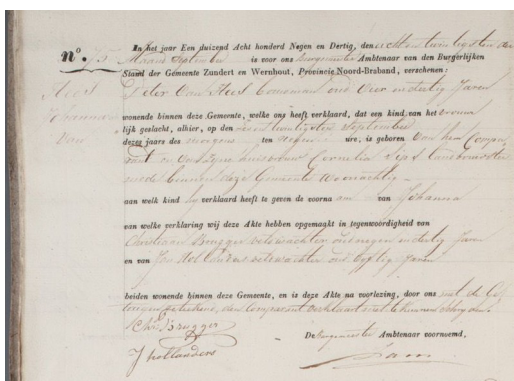 In het jaar Een duizend Acht honderd Negen en Dertig, den achtentwintigsten der
nº. Maand September is voor ons burgemeester Ambtenaar van den Burgerlijken
Stand der Gemeente Zundert en Wernhout, Provincie Noord-Braband, verschenen:
Pieter Van Aert oud Vier en dertig Jaren
Johanna
van
wonende binnen deze Gemeente, welke ons heeft verklaard, dat een kind van het vrouwe
lijk geslacht, alhier, op den September
dezes jaars des morgens ten negen ure, is geboren van hem Compa
rant en Cornelia
mede binnen deze Gemeente Woonachtig
aan welk kind hy verklaard heeft te geven de voorna am van Johanna
van welke verklaring wij deze Akte hebben opgemaakt in tegenwoordigheid van
Christiaan Brugger veldwachter oud negen en dertig Jaren
en van Jan Hollanders veldwachter oud vyftig Jaren
beiden wonende binnen deze Gemeente, en is deze Akte na voorlezing, door ons met de Ge
tuigen geteekend, de Comparant verklaart niet te kunnen schryven
Chr. Brugger
De burgemeester Ambtenaar voornoemd,
J hollanders